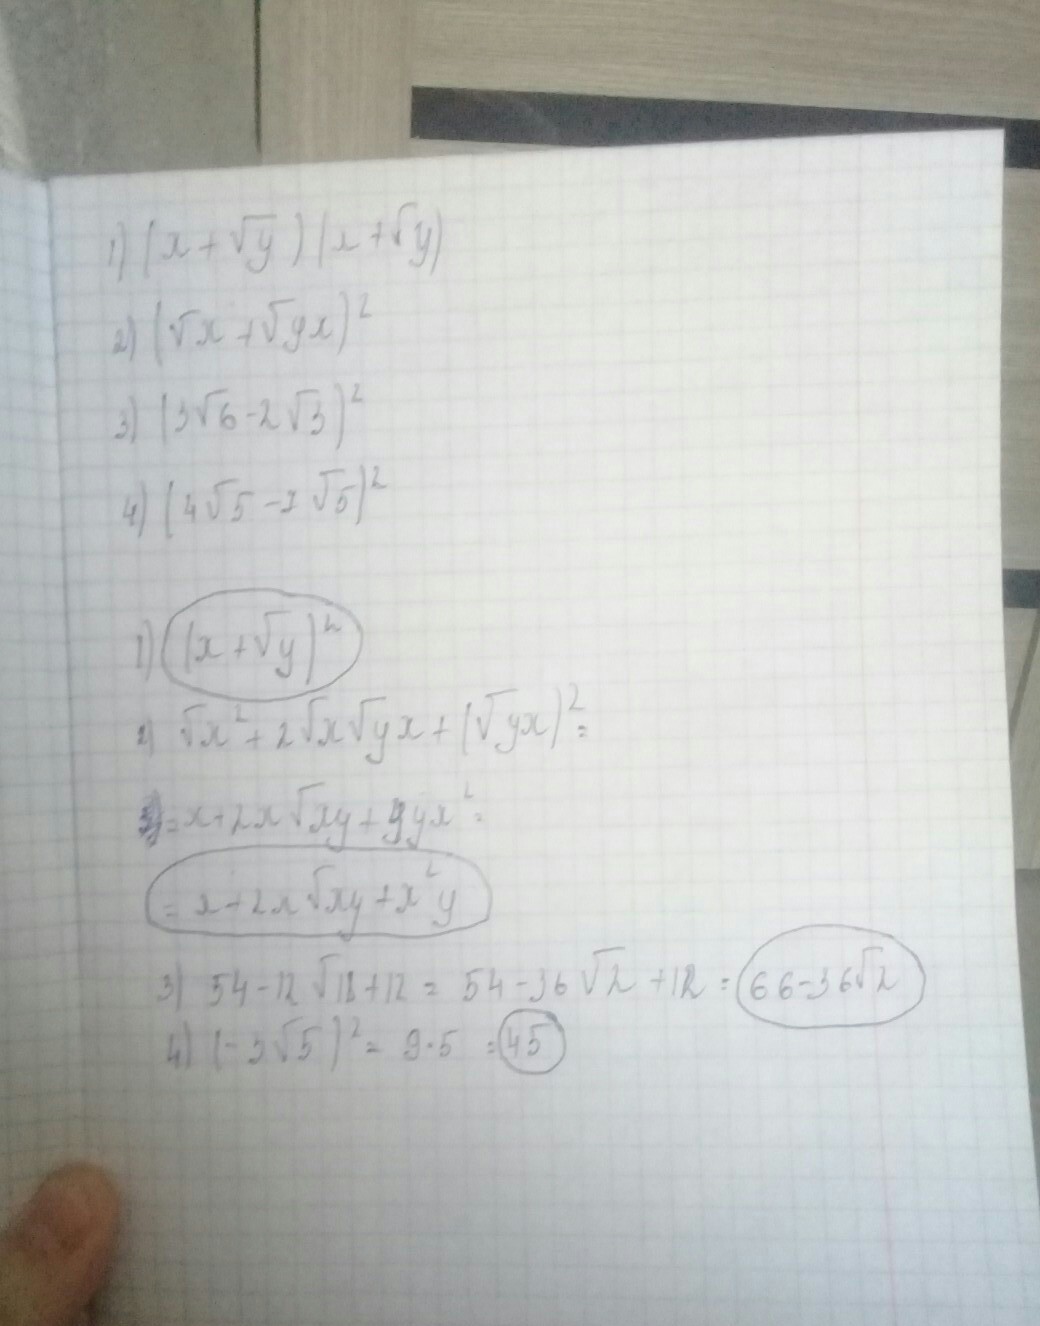 1) (x + √y)(x + √y)
2) (√x + √yx)²
3) (3√6 - 2√3)²
4) (4√5 - 7√5)²
1) (x + √y)²
2) √x² + 2√x√yx + (√yx)² =
= x + 2x√xy + yx² =
= x + 2x√xy + x²y
3) 54 - 12√18 + 12 = 54 - 36√2 + 12 = 66 - 36√2
4) (-3√5)² = 9·5 = 45